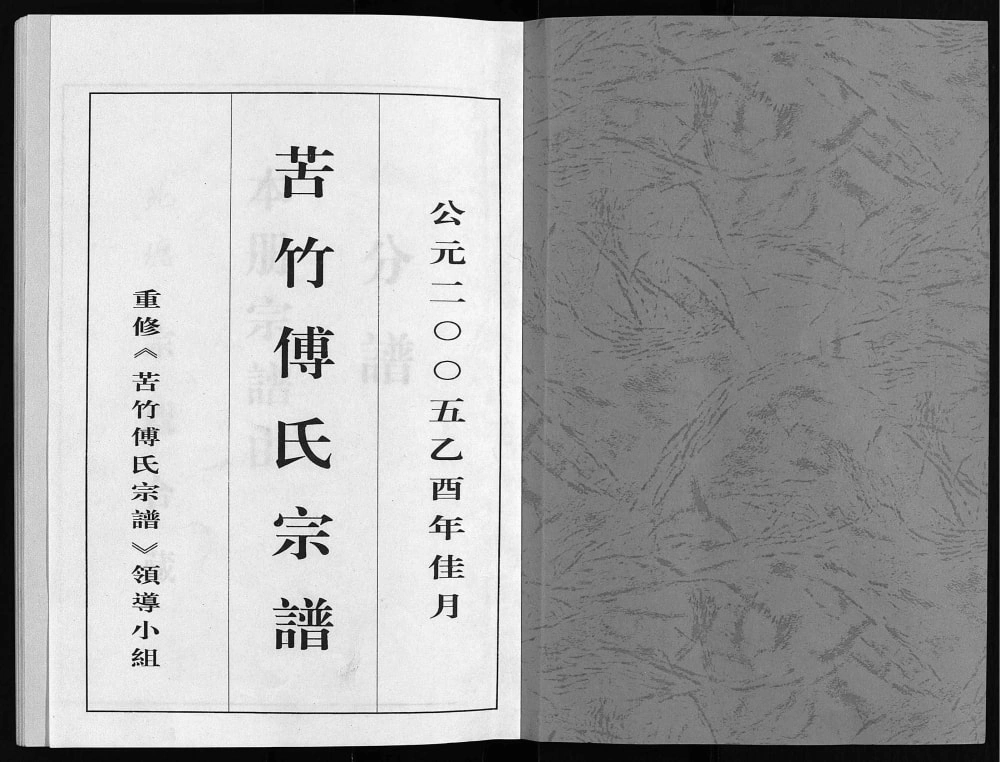 公元二〇〇五乙酉年佳月
苦竹傅氏宗譜
重修《苦竹傅氏宗譜》領導小組